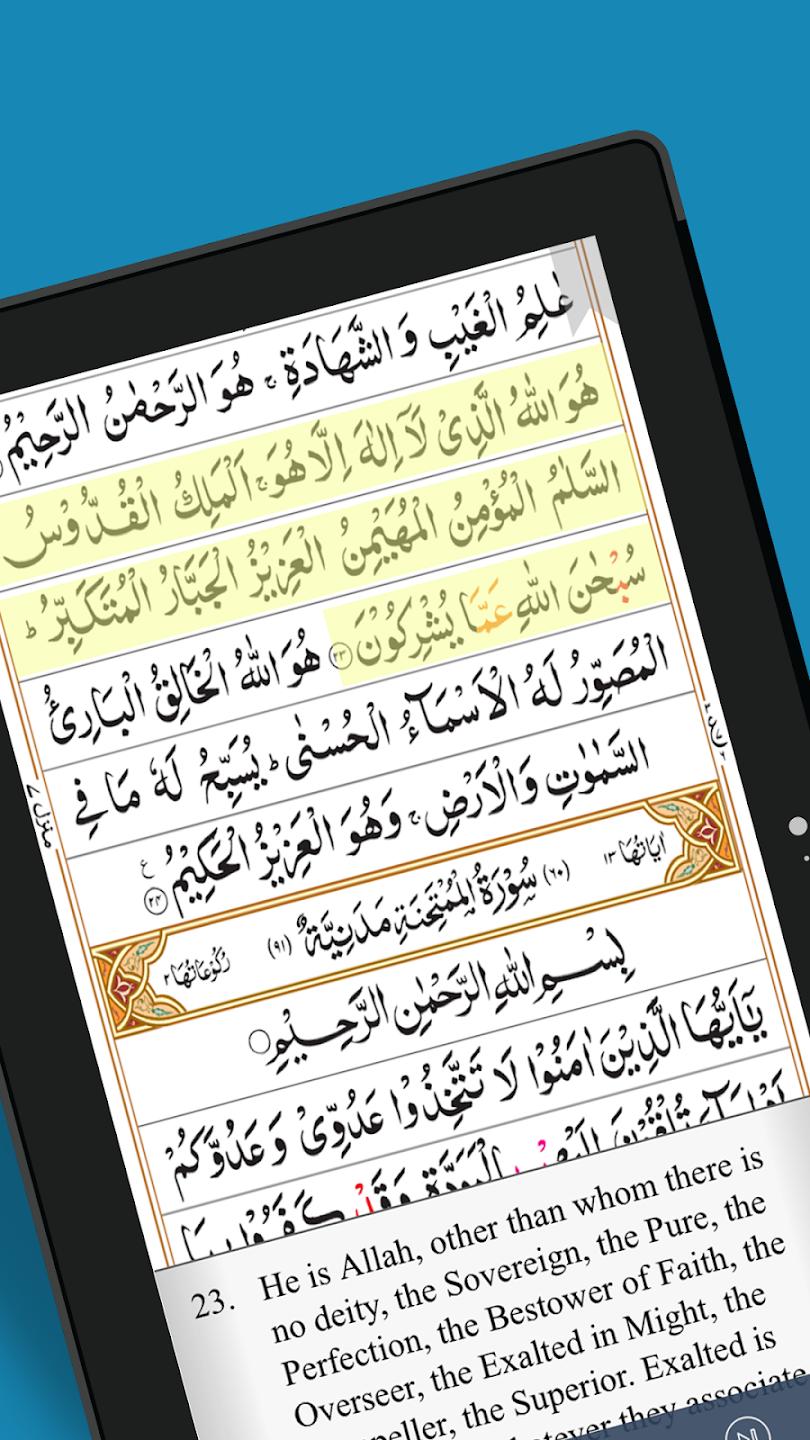 عٰلِمُ الْغَيْبِ وَالشَّهَادَةِ ۚ هُوَ الرَّحْمٰنُ الرَّحِيْمُ
هُوَ اللّٰهُ الَّذِىْ لَآ اِلٰهَ اِلَّا هُوَ ۚ اَلْمَلِكُ الْقُدُّوْسُ
السَّلٰمُ الْمُؤْمِنُ الْمُهَيْمِنُ الْعَزِيْزُ الْجَبَّارُ الْمُتَكَبِّرُ ؕ
سُبْحٰنَ اللّٰهِ عَمَّا يُشْرِكُوْنَ ﴿۲۳﴾ هُوَ اللّٰهُ الْخَالِقُ الْبَارِئُ
الْمُصَوِّرُ لَهُ الْاَسْمَآءُ الْحُسْنٰى ؕ يُسَبِّحُ لَهٗ مَا فِى
السَّمٰوٰتِ وَالْاَرْضِ ۚ وَهُوَ الْعَزِيْزُ الْحَكِيْمُ ﴿۲۴﴾ ع
منزل ۷
اٰيَاتُهَا ۱۳ (۶۰) سُوْرَةُ الْمُمْتَحِنَةِ مَدَنِيَّةٌ (۹۱) رُكُوْعَاتُهَا ۲
بِسْمِ اللّٰهِ الرَّحْمٰنِ الرَّحِيْمِ
يٰۤاَيُّهَا الَّذِيْنَ اٰمَنُوْا لَا تَتَّخِذُوْا عَدُوِّىْ وَعَدُوَّكُمْ
تُلْقُوْنَ اِلَيْهِمْ بِالْمَوَدَّةِ وَقَدْ كَفَرُوْا بِمَا
23. He is Allah, other than whom there is
no deity, the Sovereign, the Pure, the
Perfection, the Bestower of Faith, the
Overseer, the Exalted in Might, the
peller, the Superior. Exalted is
hatever they associate